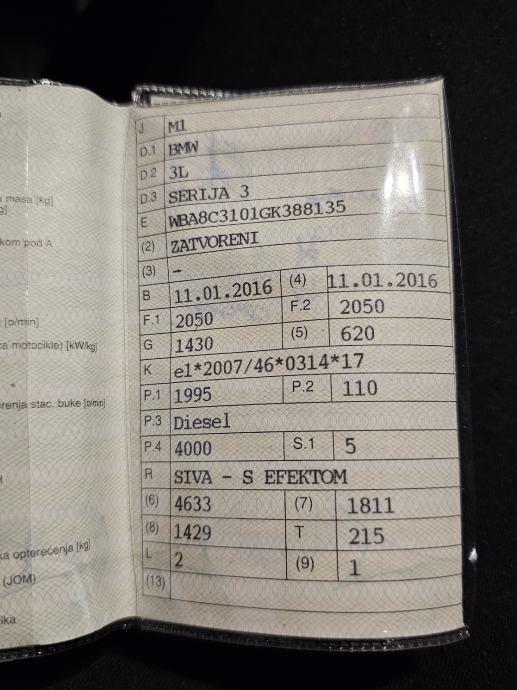 J M1
D.1 BMW
D.2 3L
D.3 SERIJA 3
E WBA8C3101GK388135
(2) ZATVORENI
(3) –
B 11.01.2016 (4) 11.01.2016
F.1 2050 F.2 2050
G 1430 (5) 620
K e1*2007/46*0314*17
P.1 1995 P.2 110
P.3 Diesel
P.4 4000 S.1 5
R SIVA - S EFEKTOM
(6) 4633 (7) 1811
(8) 1429 T 215
L 2 (9) 1
(13)
masa [kg]
kom pod A
[o/min]
motocikle) [kW/kg]
stac. buke [o/min]
opterećenja [kg]
(JOM)